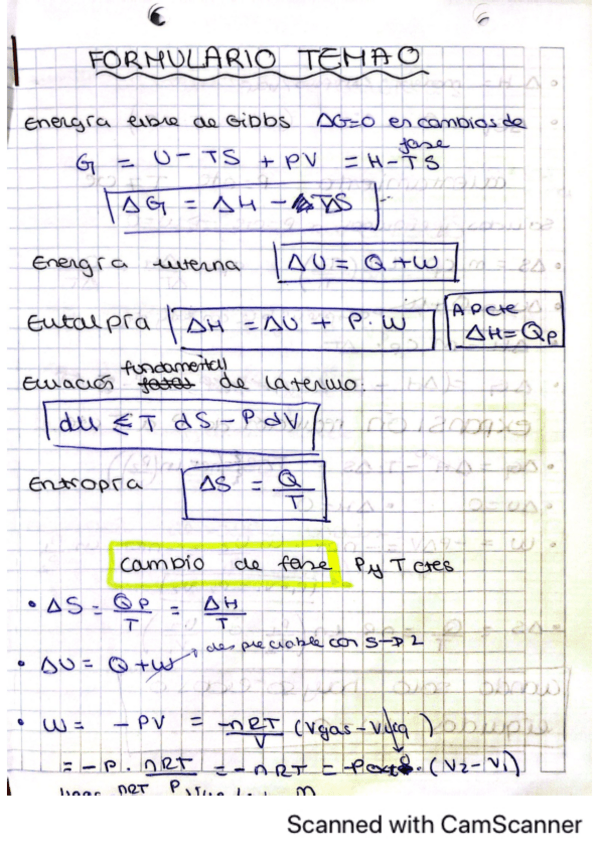 FORMULARIO TEMA 0
Energía libre de Gibbs ΔG=0 en cambios de fase
G = U - TS + PV = H - TS
ΔG = ΔH - TΔS
Energía interna ΔU = Q + W
Entalpía ΔH = ΔU + P·W
A P cte
ΔH = Qp
Ecuación fundamental de la termo:
du ≤ T dS - P dV
Entropía ΔS = Q/T
Cambio de fase P y T ctes
• ΔS = QP/T = ΔH/T
• ΔU = Q + W → despreciable con S→L
• W = -PV = -nRT/V (Vgas - Vliq)
= -P · nRT/P = -nRT = -Pext · (V2 - V1)
nRT
Scanned with CamScanner